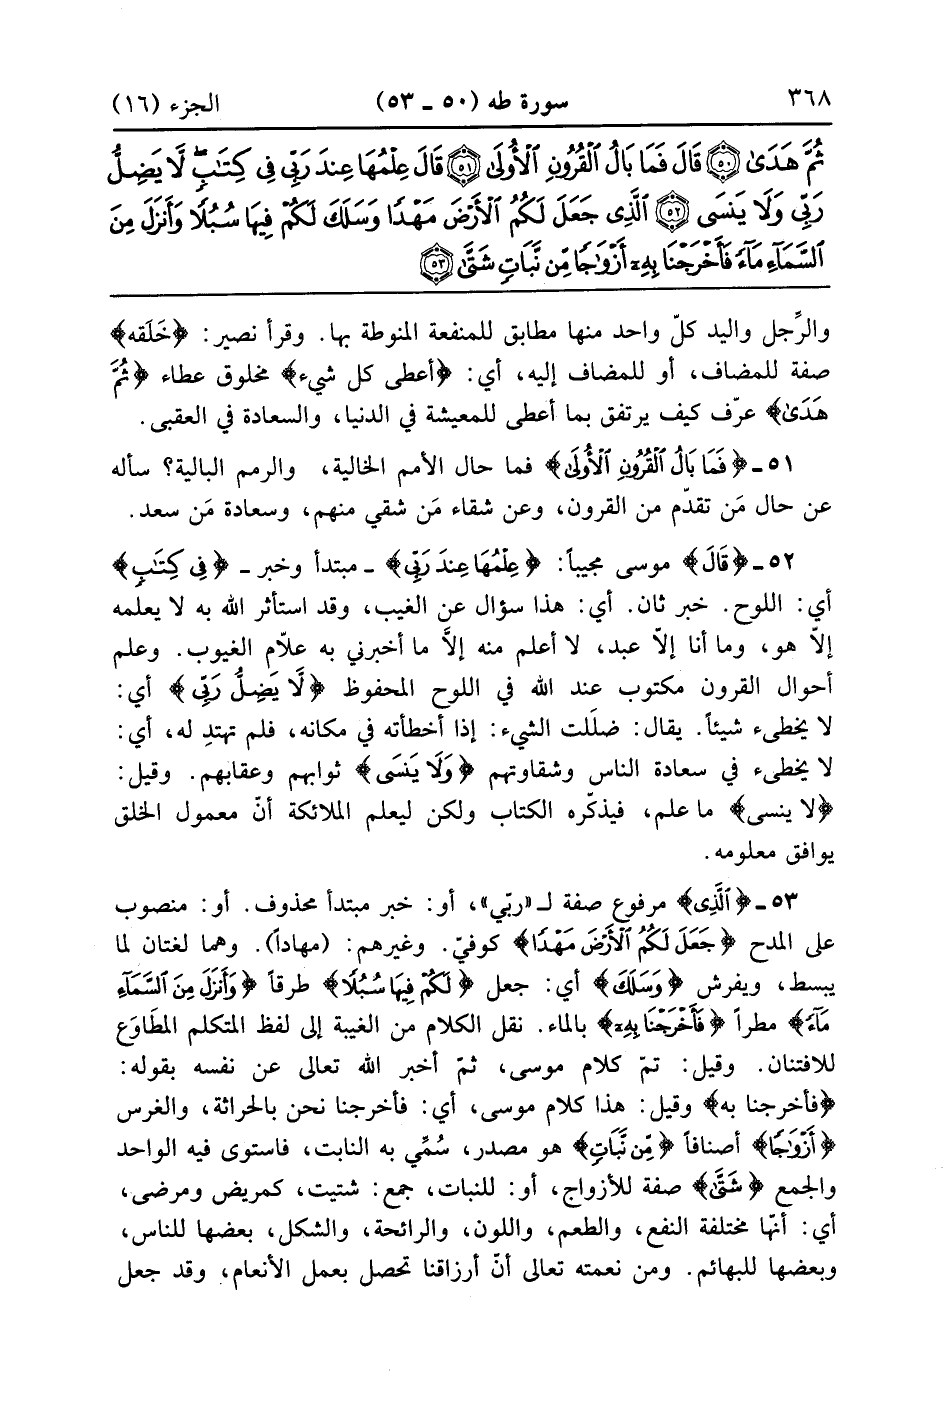 ٣٦٨ سورة طه (٥٠ ـ ٥٣) الجزء (١٦)
ثُمَّ هَدَىٰ ۝٥٠ قَالَ فَمَا بَالُ ٱلْقُرُونِ ٱلْأُولَىٰ ۝٥١ قَالَ عِلْمُهَا عِندَ رَبِّى فِى كِتَٰبٍۖ لَّا يَضِلُّ
رَبِّى وَلَا يَنسَى ۝٥٢ ٱلَّذِى جَعَلَ لَكُمُ ٱلْأَرْضَ مَهْدًا وَسَلَكَ لَكُمْ فِيهَا سُبُلًا وَأَنزَلَ مِنَ
ٱلسَّمَآءِ مَآءً فَأَخْرَجْنَا بِهِۦٓ أَزْوَٰجًا مِّن نَّبَاتٍ شَتَّىٰ ۝٥٣
والرِّجل واليد كلّ واحد منها مطابق للمنفعة المنوطة بها. وقرأ نصير: ﴿خَلَقه﴾
صفة للمضاف، أو للمضاف إليه، أي: ﴿أعطى كل شيء﴾ مخلوق عطاء ﴿ثُمَّ
هَدَىٰ﴾ عرّف كيف يرتفق بما أعطى للمعيشة في الدنيا، والسعادة في العقبى.
٥١ ـ ﴿فَمَا بَالُ ٱلْقُرُونِ ٱلْأُولَىٰ﴾ فما حال الأمم الخالية، والرمم البالية؟ سأله
عن حال مَن تقدّم من القرون، وعن شقاء مَن شقي منهم، وسعادة مَن سعد.
٥٢ ـ ﴿قَالَ﴾ موسى مجيباً: ﴿عِلْمُهَا عِندَ رَبِّى﴾ ـ مبتدأ وخبر ـ ﴿فِى كِتَٰبٍ﴾
أي: اللوح. خبر ثان. أي: هذا سؤال عن الغيب، وقد استأثر الله به لا يعلمه
إلاّ هو، وما أنا إلاّ عبد، لا أعلم منه إلاَّ ما أخبرني به علاّم الغيوب. وعلم
أحوال القرون مكتوب عند الله في اللوح المحفوظ ﴿لَّا يَضِلُّ رَبِّى﴾ أي:
لا يخطىء شيئاً. يقال: ضلَلت الشيء: إذا أخطأته في مكانه، فلم تهتدِ له، أي:
لا يخطىء في سعادة الناس وشقاوتهم ﴿وَلَا يَنسَى﴾ ثوابهم وعقابهم. وقيل:
﴿لا ينسى﴾ ما علم، فيذكّره الكتاب ولكن ليعلم الملائكة أنّ معمول الخلق
يوافق معلومه.
٥٣ ـ ﴿ٱلَّذِى﴾ مرفوع صفة لـ «ربّي»، أو: خبر مبتدأ محذوف. أو: منصوب
على المدح ﴿جَعَلَ لَكُمُ ٱلْأَرْضَ مَهْدًا﴾ كوفيّ. وغيرهم: (مهاداً). وهما لغتان لما
يبسط، ويفرش ﴿وَسَلَكَ﴾ أي: جعل ﴿لَكُمْ فِيهَا سُبُلًا﴾ طرقاً ﴿وَأَنزَلَ مِنَ ٱلسَّمَآءِ
مَآءً﴾ مطراً ﴿فَأَخْرَجْنَا بِهِۦٓ﴾ بالماء. نقل الكلام من الغيبة إلى لفظ المتكلم المطَاوَع
للافتنان. وقيل: تمّ كلام موسى، ثمّ أخبر الله تعالى عن نفسه بقوله:
﴿فأخرجنا به﴾ وقيل: هذا كلام موسى، أي: فأخرجنا نحن بالحراثة، والغرس
﴿أَزْوَٰجًا﴾ أصنافاً ﴿مِّن نَّبَاتٍ﴾ هو مصدر، سُمِّي به النابت، فاستوى فيه الواحد
والجمع ﴿شَتَّىٰ﴾ صفة للأزواج، أو: للنبات، جمع: شتيت، كمريض ومرضى،
أي: أنّها مختلفة النفع، والطعم، واللون، والرائحة، والشكل، بعضها للناس،
وبعضها للبهائم. ومن نعمته تعالى أنّ أرزاقنا تحصل بعمل الأنعام، وقد جعل